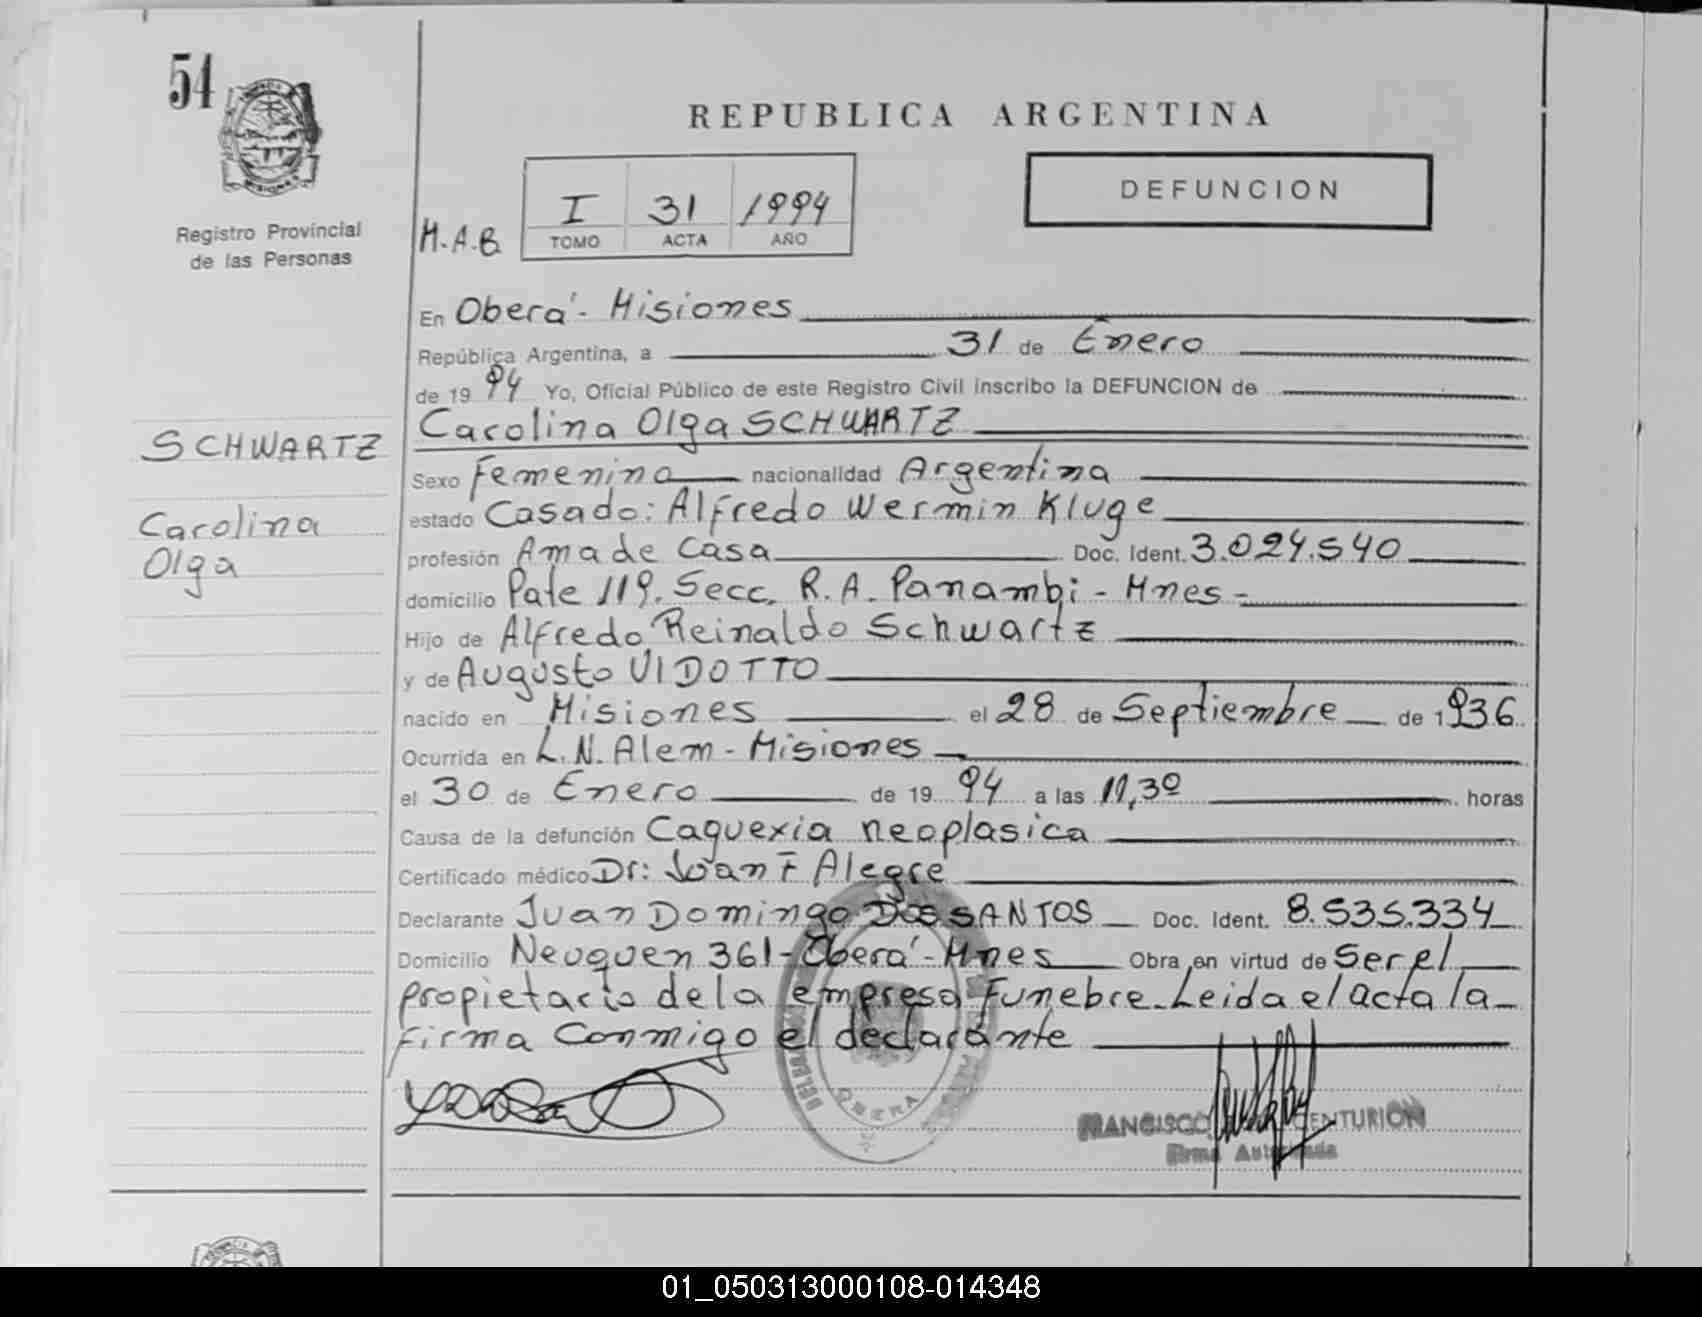 54
REPUBLICA ARGENTINA
DEFUNCION
I 31 1994
TOMO ACTA AÑO
H.A.B
Registro Provincial
de las Personas
En Oberá - Misiones
República Argentina, a 31 de Enero
de 19 94 Yo, Oficial Público de este Registro Civil inscribo la DEFUNCION de
Carolina Olga SCHWARTZ
SCHWARTZ
Carolina
Olga
Sexo Femenino nacionalidad Argentina
estado Casado: Alfredo Wermin Kluge
profesión Ama de Casa Doc. Ident. 3.024.540
domicilio Pate 119. Secc. R.A. Panambi - Mnes -
Hijo de Alfredo Reinaldo Schwartz
y de Augusto VIDOTTO
nacido en Misiones el 28 de Septiembre de 1936
Ocurrida en L.N. Alem - Misiones
el 30 de Enero de 19 94 a las 11,30 horas
Causa de la defunción Caquexia neoplasica
Certificado médico Dr: Joan F Alegre
Declarante Juan Domingo Dos SANTOS Doc. Ident. 8.535.334
Domicilio Neuquen 361 - Oberá - Mnes Obra en virtud de Ser el
propietario de la empresa Funebre. Leida el acta la
firma conmigo el declarante
OBERA
CENTURION
Firma Autorizada
01_050313000108-014348